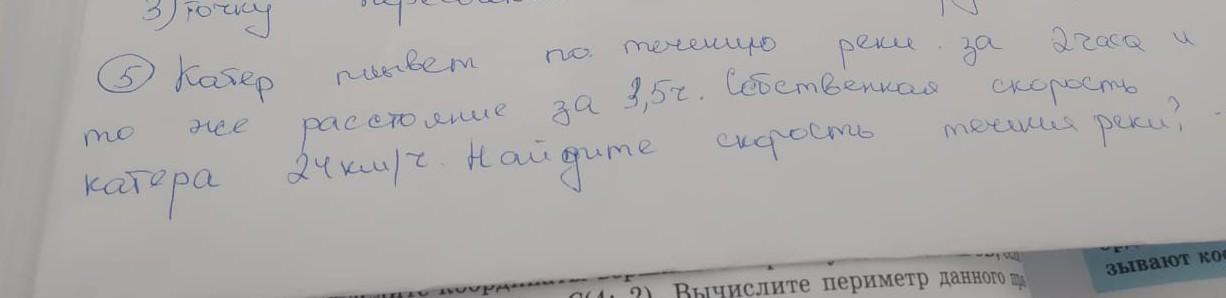 3) точку
⑤ Катер плывет по течению реки за 2 часа и
то же расстояние за 3,5ч. Собственная скорость
катера 24 км/ч. Найдите скорость течния реки?
Вычислите периметр данного
зывают